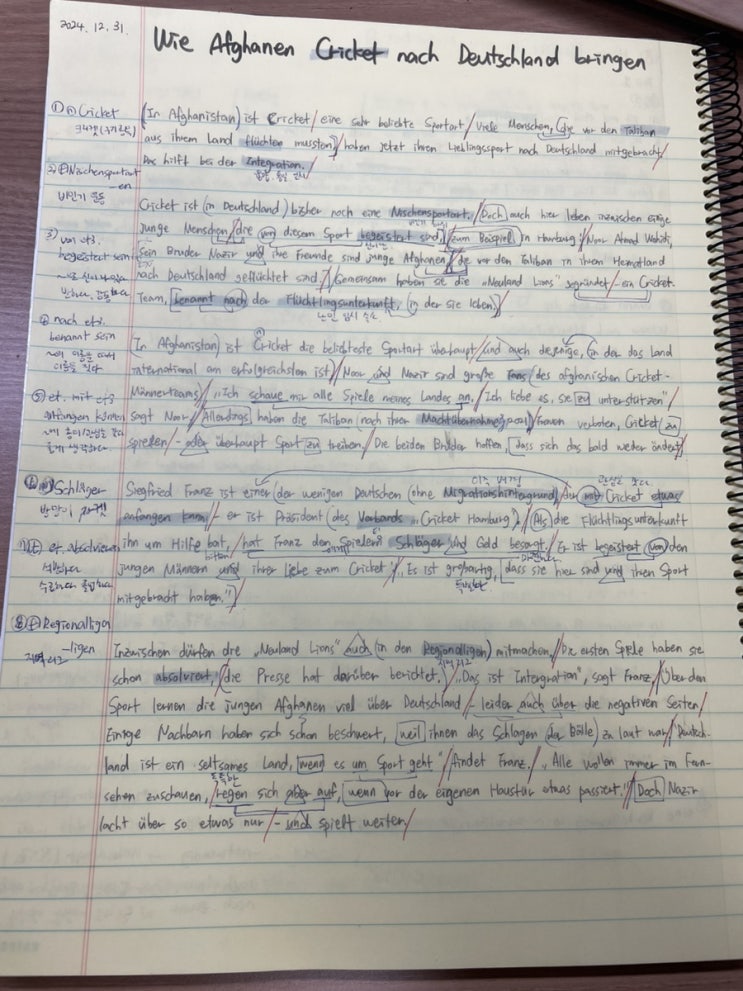 2024. 12. 31.
Wie Afghanen Cricket nach Deutschland bringen
① ⓝ Cricket
(In Afghanistan) ist Cricket/ eine sehr beliebte Sportart/ Viele Menschen, (die vor den Taliban
aus ihrem Land flüchten mussten)/ haben jetzt ihren Lieblingssport nach Deutschland mitgebracht/
Das hilft bei der Integration./
Nischensportart
-en
Cricket ist (in Deutschland) bisher noch eine Nischensportart./ Doch auch hier leben inzwischen einige
junge Menschen/ die von diesem Sport begeistert sind/ zum Beispiel in Hamburg:/ Noor Ahmad Wahidi,
3) von etw.
begeistert sein
sein Bruder Nazir und ihre Freunde sind junge Afghanen/ die vor den Taliban in ihrem Heimatland
nach Deutschland geflüchtet sind./ Gemeinsam haben sie die „Neuland Lions" gegründet/ - ein Cricket-
Team, benannt nach der Flüchtlingsunterkunft, (in der sie leben)/
난민 임시 숙소
nach etw.
benannt sein
(In Afghanistan) ist Cricket die beliebteste Sportart überhaupt/ und auch diejenige, (in der das Land
international am erfolgreichsten ist)/ Noor und Nazir sind große Fans (des afghanischen Cricket-
⑤ et. mit etw.
anfangen können
Männerteams)/ „Ich schaue mir alle Spiele meines Landes an./ Ich liebe es, sie zu unterstützen"/
sagt Noor/ Allerdings haben die Taliban (nach ihrer Machtübernahme 2021)/ Frauen verboten, Cricket zu
spielen/ - oder überhaupt Sport zu treiben./ Die beiden Brüder hoffen, dass sich das bald wieder ändert/
Schläger
Siegfried Franz ist einer (der wenigen Deutschen (ohne Migrationshintergrund)/ der mit Cricket etwas
anfangen kann)/ er ist Präsident (des Verbands „Cricket Hamburg)/ Als die Flüchtlingsunterkunft
et. absolvieren
ihn um Hilfe bat,/ hat Franz den Spielern Schläger und Geld besorgt./ Er ist begeistert von den
bitten
jungen Männern und ihrer Liebe zum Cricket:/ „Es ist großartig, dass sie hier sind und ihren Sport
mitgebracht haben."/
⑧ ⓕ Regionalliga
-ligen
지역 리그
Inzwischen dürfen die „Neuland Lions" auch (in den Regionalligen) mitmachen./ Die ersten Spiele haben sie
지역 리그
schon absolviert,/ (die Presse hat darüber berichtet,)/ „Das ist Intergration", sagt Franz./ Über den
Sport lernen die jungen Afghanen viel über Deutschland/ - leider auch über die negativen Seiten/
Einige Nachbarn haben sich schon beschwert, weil ihnen das Schlagen (der Bälle) zu laut war/ „Deutsch-
land ist ein seltsames Land, wenn es um Sport geht"/ findet Franz./ „Alle wollen immer im Fern-
독특한
sehen zuschauen,/ regen sich aber auf, wenn vor der eigenen Haustür etwas passiert."/ Doch Nazir
lacht über so etwas nur/ - und spielt weiter/